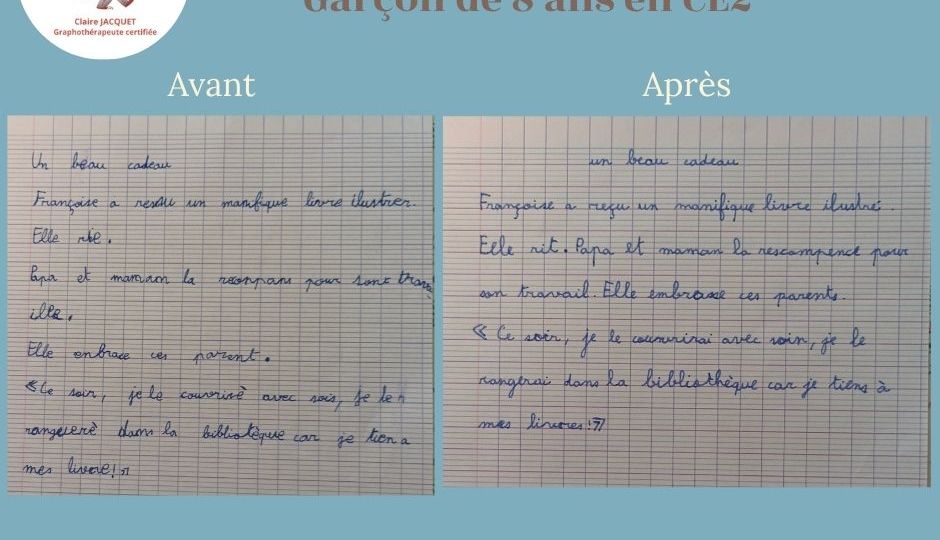 Claire JACQUET
Graphothérapeute certifiée
Garçon de 8 ans en CE2
Avant
Après
Un beau cadeau
Françoise a ressu un manfique livre ilustrer.
Elle rie.
Papa et maman la pour sont trava
ille.
Elle enbrace ces parent.
«Ce soir, je le couvrirè avec sois, je le
rangererè dans la bibliotèque car je tien a
mes livre!»
un beau cadeau
Françoise a reçu un manifique livre ilustré.
Elle rit. Papa et maman la rescompence pour
son travail. Elle embrasse ces parents.
« Ce soir, je le couvrirai avec soin, je le
rangerai dans la bibliothèque car je tiens à
mes livres!»